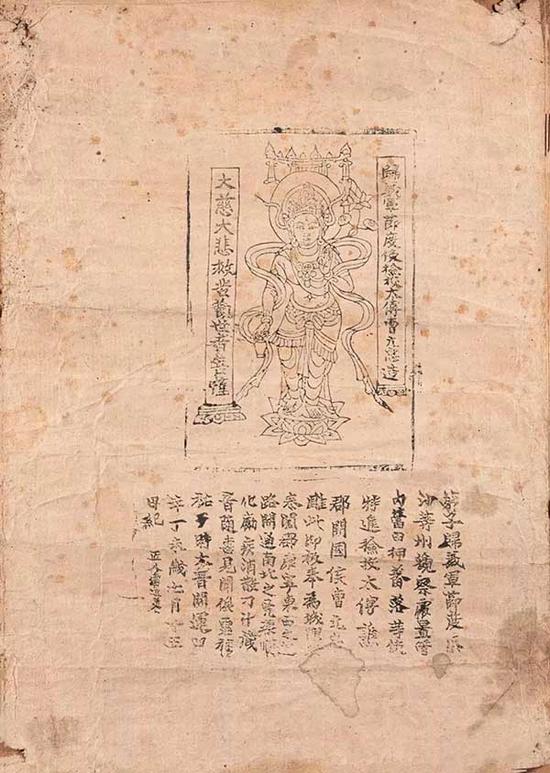 歸義軍節度使檢校太傅曹元忠造
大慈大悲救苦觀世音菩薩
弟子歸義軍節度瓜
沙等州觀察處置管
內營田押蕃落等使
特進檢校太傅譙
郡開國侯曹元忠
雕此印板奉為城隍
泰闔郡康寧東西之
路開通南北之兇渠順
化勵疾消散刁斗藏
音隨喜見聞俱霑福
祐于時大晉開運四
年丁未歲七月十五
日紀 匠人雷延美